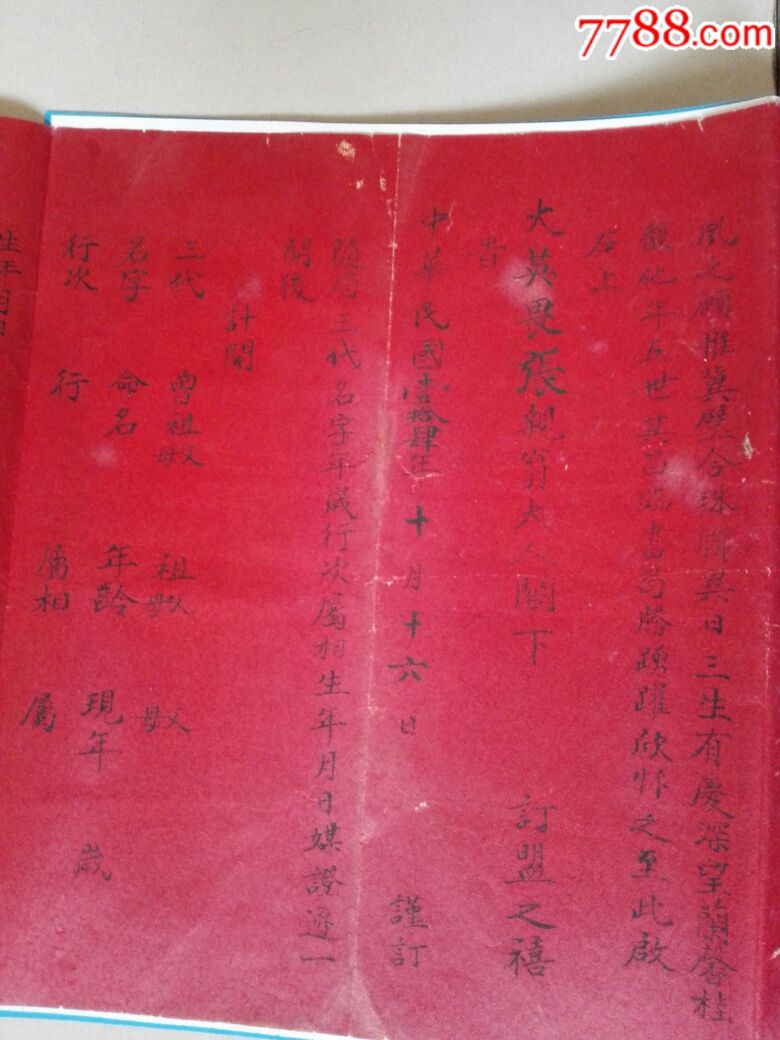 7788.com
鳳之願惟冀璧合珠聯異日三生有慶深望蘭馨桂
馥他年五世其昌臨書曷勝踴躍欣忭之至此啟
右上
大英畏張親翁大人閣下 訂盟之禧
告
中華民國壹拾肆年十月十六日 謹訂
隨開三代名字年歲行次屬相生年月日媒證逐一
開後
計開
三代 曾祖父母 祖父母 父母
名字 命名 年齡 現年 歲
行次 行 屬相 屬
生年月日